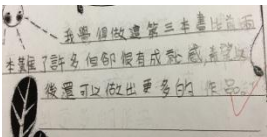 我覺得做這第三本書比前兩
本費了許多但卻很有成就感,希望以
後還可以做出更多的作品。